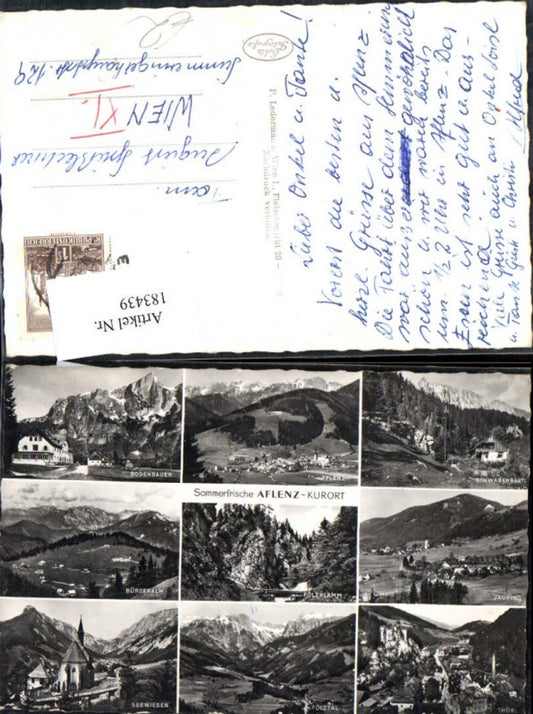 Lieber Onkel u. Tante!
Vorerst die besten u.
herzl. Grüsse aus Aflenz
Die Fahrt über den Semmering
war ausser gewöhnlich
schön u. wir waren bereits
um ½ 2 Uhr in Aflenz. Das
Essen ist sehr gut u. aus-
reichend
Viele Grüsse auch an Onkel
u. Tante u. Christl Alfred
P. Ledermann, Wien I., Fleischmarkt 20
Nachdruck verboten
Echte
Fotografie
Fam.
August
WIEN XI.
Simmeringerhauptstr. 129
REPUBLIK ÖSTERREICH
Artikel Nr.
183439
BODENBAUER
AFLENZ
SCHWABENBARTL
Sommerfrische AFLENZ-KURORT
BÜRGERALM
FÖLZKLAMM
JAURING
SEEWIESEN
FÖLZTAL
THÖRL